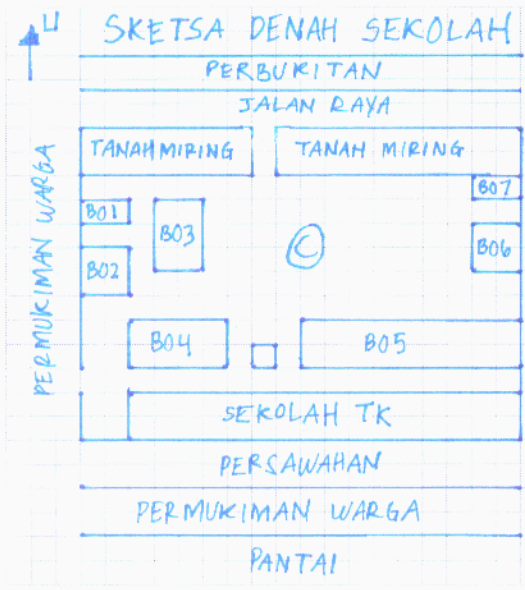 U
SKETSA DENAH SEKOLAH
PERBUKITAN
JALAN RAYA
TANAH MIRING
TANAH MIRING
PERMUKIMAN WARGA
B01
B02
B03
C
B07
B06
B04
B05
SEKOLAH TK
PERSAWAHAN
PERMUKIMAN WARGA
PANTAI